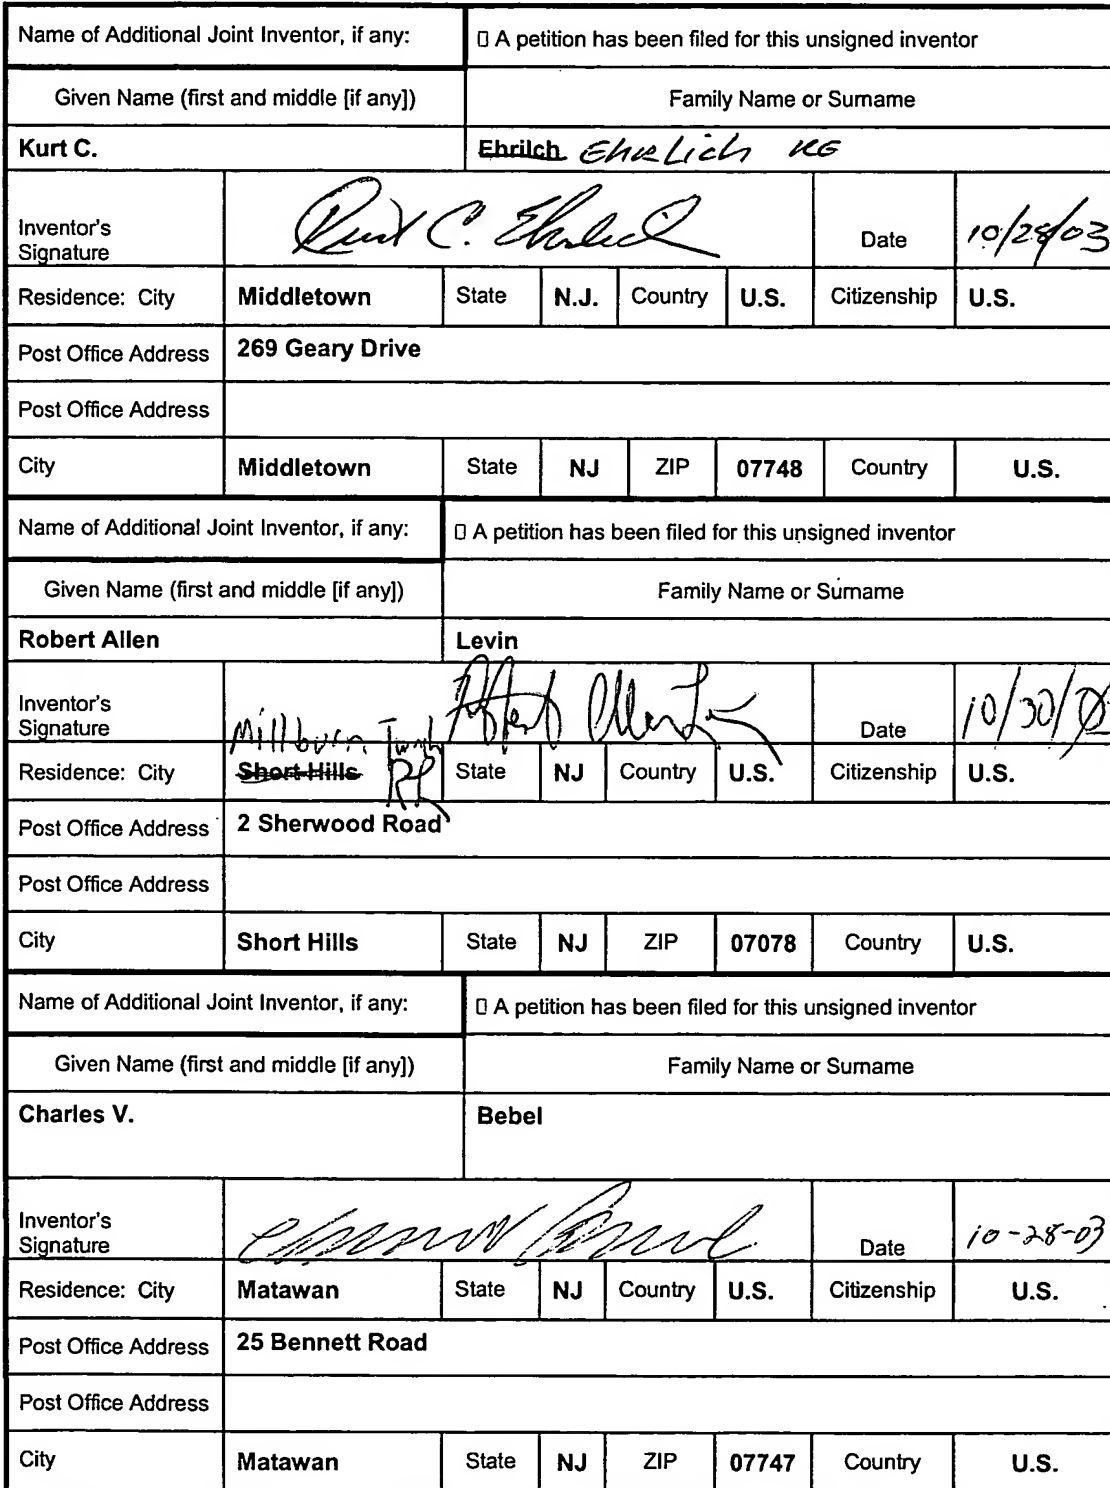 Name of Additional Joint Inventor, if any: ▯ A petition has been filed for this unsigned inventor
Given Name (first and middle [if any]) Family Name or Surname
Kurt C. Ehrilch Ehrlich KE
Kurt C. Ehrlich
Inventor's
Signature Date 10/28/03
Residence: City Middletown State N.J. Country U.S. Citizenship U.S.
Post Office Address 269 Geary Drive
Post Office Address
City Middletown State NJ ZIP 07748 Country U.S.
Name of Additional Joint Inventor, if any: ▯ A petition has been filed for this unsigned inventor
Given Name (first and middle [if any]) Family Name or Surname
Robert Allen Levin
Inventor's
Signature Date 10/30/
Millburn Twnsh
Residence: City Short Hills State NJ Country U.S. Citizenship U.S.
Post Office Address 2 Sherwood Road
Post Office Address
City Short Hills State NJ ZIP 07078 Country U.S.
Name of Additional Joint Inventor, if any: ▯ A petition has been filed for this unsigned inventor
Given Name (first and middle [if any]) Family Name or Surname
Charles V. Bebel
Inventor's
Signature Date 10-28-03
Residence: City Matawan State NJ Country U.S. Citizenship U.S.
Post Office Address 25 Bennett Road
Post Office Address
City Matawan State NJ ZIP 07747 Country U.S.